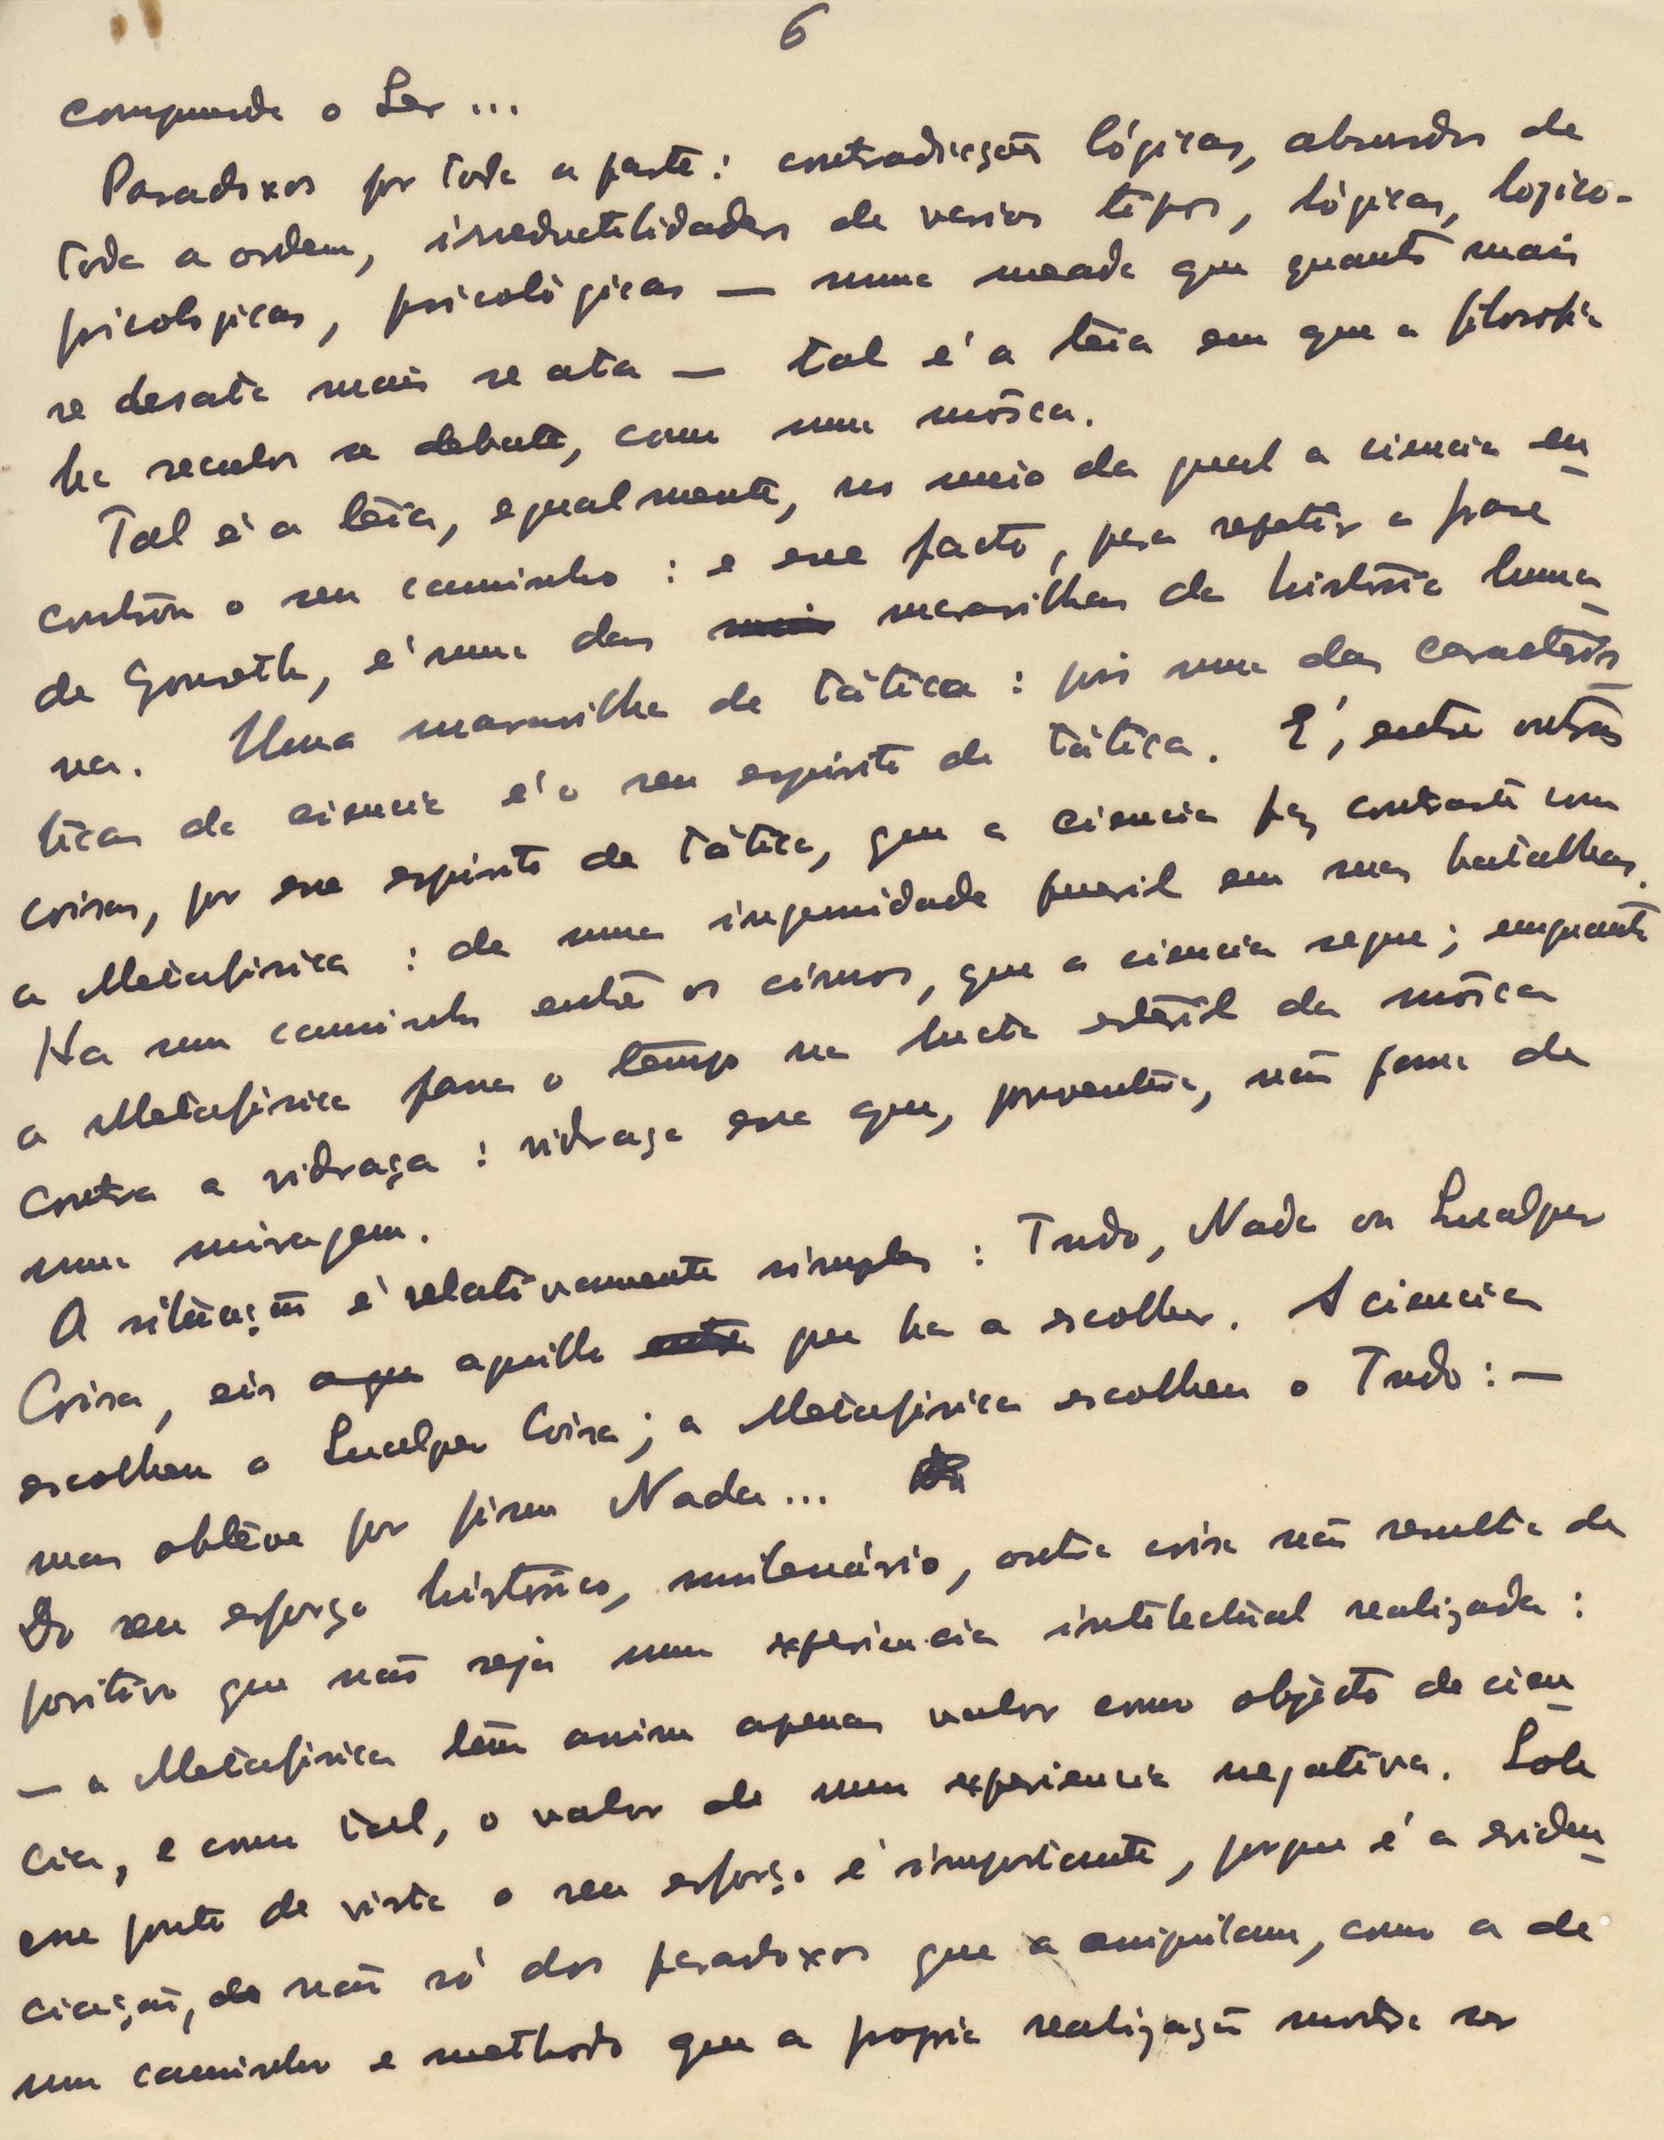 6
comprende o Ser ...
Paradoxos por toda a parte: contradicções lógicas, absurdos de
toda a ordem, irreductibilidades de varios tipos, lógicas, logico-
psicologicas, psicológicas — uma meada que quanto mais
se desata mais se ata — tal é a teia em que a filosofia
ha seculos se debate, como uma môsca.
Tal é a teia, egualmente, no meio da qual a ciencia en
controu o seu caminho: e esse facto, para repetir a frase
de Gonseth, é uma das maravilhas da história huma
na. Uma maravilha de tática: pois uma das caracterís
ticas da ciencia é o seu espirito de tática. E', entre outras
coisas, por esse espirito de tática, que a ciencia faz contraste com
a Metafisica: de uma ingenuidade pueril em suas batalhas.
Ha um caminho entre os cimos, que a ciencia segue; emquanto
a Metafisica passa o tempo na lucta estéril da môsca
contra a vidraça: vidraça essa que, porventura, não passa de
uma miragem.
A situação é relativamente simples: Tudo, Nada ou Qualquer
Coisa, eis a que aquillo que ha a escolher. A ciencia
escolheu o Qualquer Coisa; a Metafisica escolheu o Tudo: —
mas obteve por fim Nada...
Do seu esforço histórico, milenário, outra coisa não resulta de
positivo que não seja uma experiencia intelectual realizada:
— a Metafisica tem assim apenas valor como objecto de cien
cia, e como tal, o valor de uma experiencia negativa. Sob
esse ponto de vista o seu esforço é importante, porque é a eviden
ciação, de não só dos paradoxos que a aniquilam, como a de
um caminho e methodo que a propria realização mostra ser